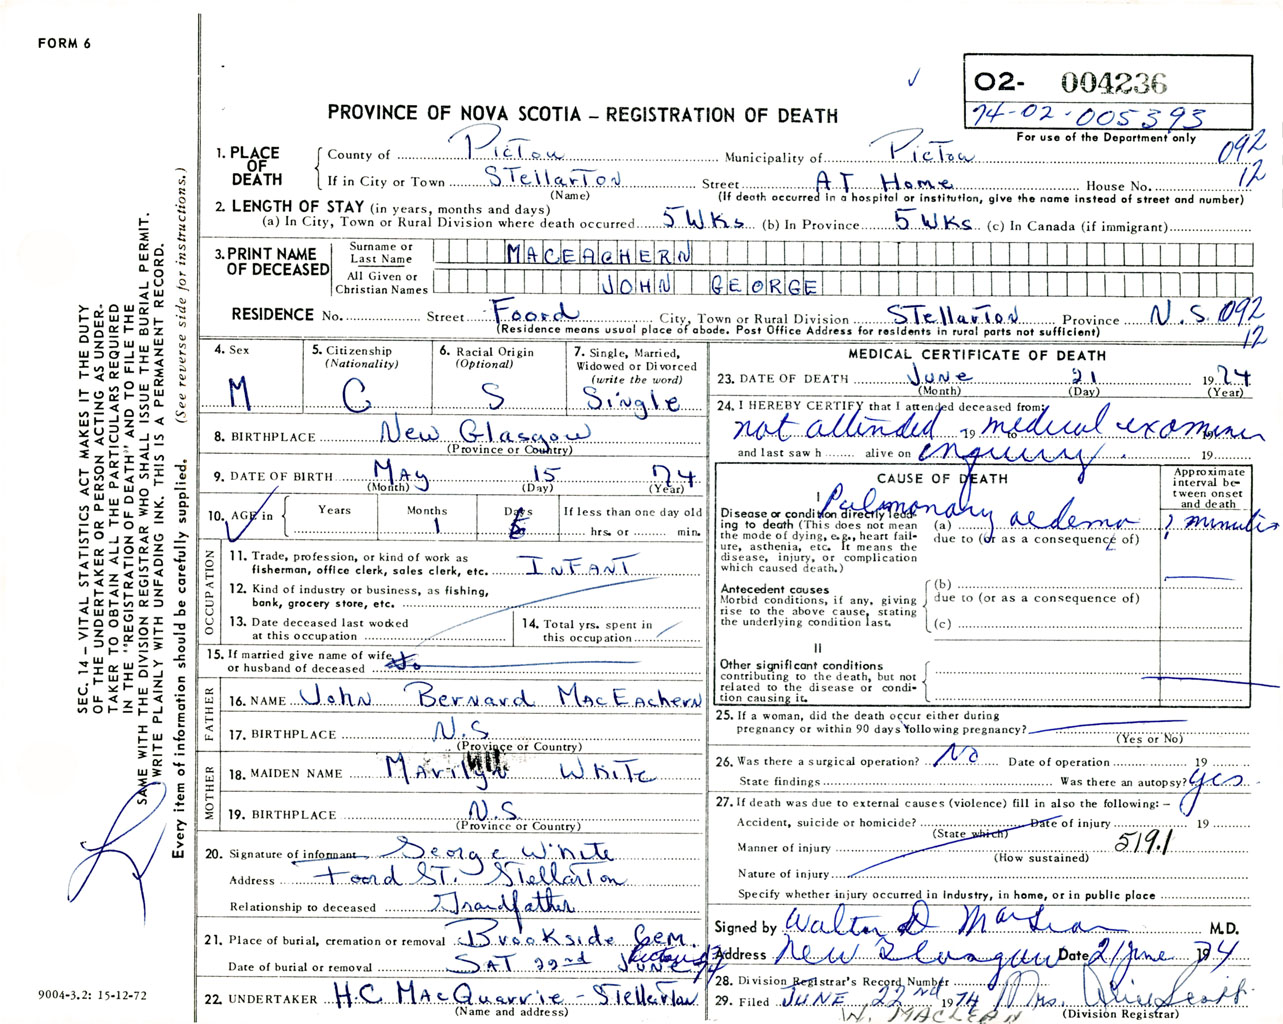 FORM 6
02- 004236
74-02-005393
For use of the Department only
PROVINCE OF NOVA SCOTIA – REGISTRATION OF DEATH
092
12
1. PLACE OF DEATH
County of Pictou Municipality of Pictou
If in City or Town Stellarton Street At Home House No.
(Name) (If death occurred in a hospital or institution, give the name instead of street and number)
2. LENGTH OF STAY (in years, months and days)
(a) In City, Town or Rural Division where death occurred 5 Wks (b) In Province 5 Wks (c) In Canada (if immigrant)
3. PRINT NAME OF DECEASED
Surname or Last Name MACEACHERN
All Given or Christian Names JOHN GEORGE
RESIDENCE No. Street Foord City, Town or Rural Division Stellarton Province N.S. 092
12
(Residence means usual place of abode. Post Office Address for residents in rural parts not sufficient)
4. Sex
M
5. Citizenship
(Nationality)
C
6. Racial Origin
(Optional)
S
7. Single, Married,
Widowed or Divorced
(write the word)
Single
8. BIRTHPLACE New Glasgow
(Province or Country)
9. DATE OF BIRTH May 15 74
(Month) (Day) (Year)
10. AGE in
Years Months Days If less than one day old
1 hrs. or min.
OCCUPATION
11. Trade, profession, or kind of work as
fisherman, office clerk, sales clerk, etc. INFANT
12. Kind of industry or business, as fishing,
bank, grocery store, etc.
13. Date deceased last worked
at this occupation
14. Total yrs. spent in
this occupation
15. If married give name of wife
or husband of deceased
FATHER
16. NAME John Bernard MacEachern
17. BIRTHPLACE N.S
(Province or Country)
MOTHER
18. MAIDEN NAME Marilyn White
19. BIRTHPLACE N.S.
(Province or Country)
20. Signature of informant George White
Address Foord St. Stellarton
Relationship to deceased Grandfather
21. Place of burial, cremation or removal Brookside Cem.
Pictou
Date of burial or removal SAT 22nd JUNE 74
22. UNDERTAKER H.C. MacQuarrie - Stellarton
(Name and address)
MEDICAL CERTIFICATE OF DEATH
23. DATE OF DEATH June 21 1974
(Month) (Day) (Year)
24. I HEREBY CERTIFY that I attended deceased from:
not attended 19 to medical examiner 19
and last saw h alive on enquiry. 19
CAUSE OF DEATH
Approximate
interval be-
tween onset
and death
I
Disease or condition directly lead-
ing to death (This does not mean
the mode of dying, e.g., heart fail-
ure, asthenia, etc. It means the
disease, injury, or complication
which caused death.)
(a) Pulmonary oedema ; minutes
due to (or as a consequence of)
Antecedent causes
Morbid conditions, if any, giving
rise to the above cause, stating
the underlying condition last.
(b)
due to (or as a consequence of)
(c)
II
Other significant conditions
contributing to the death, but not
related to the disease or condi-
tion causing it.
25. If a woman, did the death occur either during
pregnancy or within 90 days following pregnancy?
(Yes or No)
26. Was there a surgical operation? No Date of operation 19
State findings Was there an autopsy? yes
27. If death was due to external causes (violence) fill in also the following: –
Accident, suicide or homicide? Date of injury 19
(State which)
Manner of injury 519.1
(How sustained)
Nature of injury
Specify whether injury occurred in Industry, in home, or in public place
Signed by Walter D M.D.
Address New Glasgow Date 21 June 1974
28. Division Registrar's Record Number
29. Filed JUNE 22nd 1974 Mrs. Alice Scott
W. MACLEAN (Division Registrar)
SEC. 14 – VITAL STATISTICS ACT MAKES IT THE DUTY
OF THE UNDERTAKER OR PERSON ACTING AS UNDER-
TAKER TO OBTAIN ALL THE PARTICULARS REQUIRED
IN THE "REGISTRATION OF DEATH" AND TO FILE THE
SAME WITH THE DIVISION REGISTRAR WHO SHALL ISSUE THE BURIAL PERMIT.
WRITE PLAINLY WITH UNFADING INK. THIS IS A PERMANENT RECORD.
Every item of information should be carefully supplied. (See reverse side for instructions.)
9004-3.2: 15-12-72